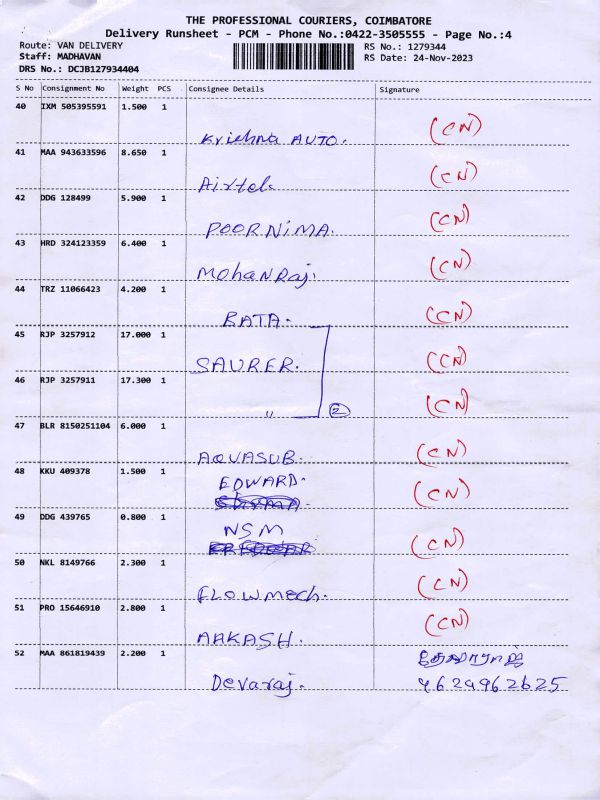 THE PROFESSIONAL COURIERS, COIMBATORE
Delivery Runsheet - PCM - Phone No.:0422-3505555 - Page No.:4
Route: VAN DELIVERY RS No.: 1279344
Staff: MADHAVAN RS Date: 24-Nov-2023
DRS No.: DCJB127934404
S No Consignment No Weight PCS Consignee Details Signature
40 IXM 505395591 1.500 1
Krishna AUTO. (CN)
41 MAA 943633596 8.650 1
Airtel. (CN)
42 DDG 128499 5.900 1
POORNIMA. (CN)
43 HRD 324123359 6.400 1
MohanRaj. (CN)
44 TRZ 11066423 4.200 1
BATA. (CN)
45 RJP 3257912 17.000 1
SAURER. (CN)
46 RJP 3257911 17.300 1
" 2 (CN)
47 BLR 8150251104 6.000 1
AQUASUB. (CN)
48 KKU 409378 1.500 1
EDWARD. (CN)
49 DDG 439765 0.800 1
NSM (CN)
50 NKL 8149766 2.300 1
FLOWmech. (CN)
51 PRO 15646910 2.800 1
AAKASH. (CN)
52 MAA 861819439 2.200 1
தேவராஜ்
Devaraj. 9629962625